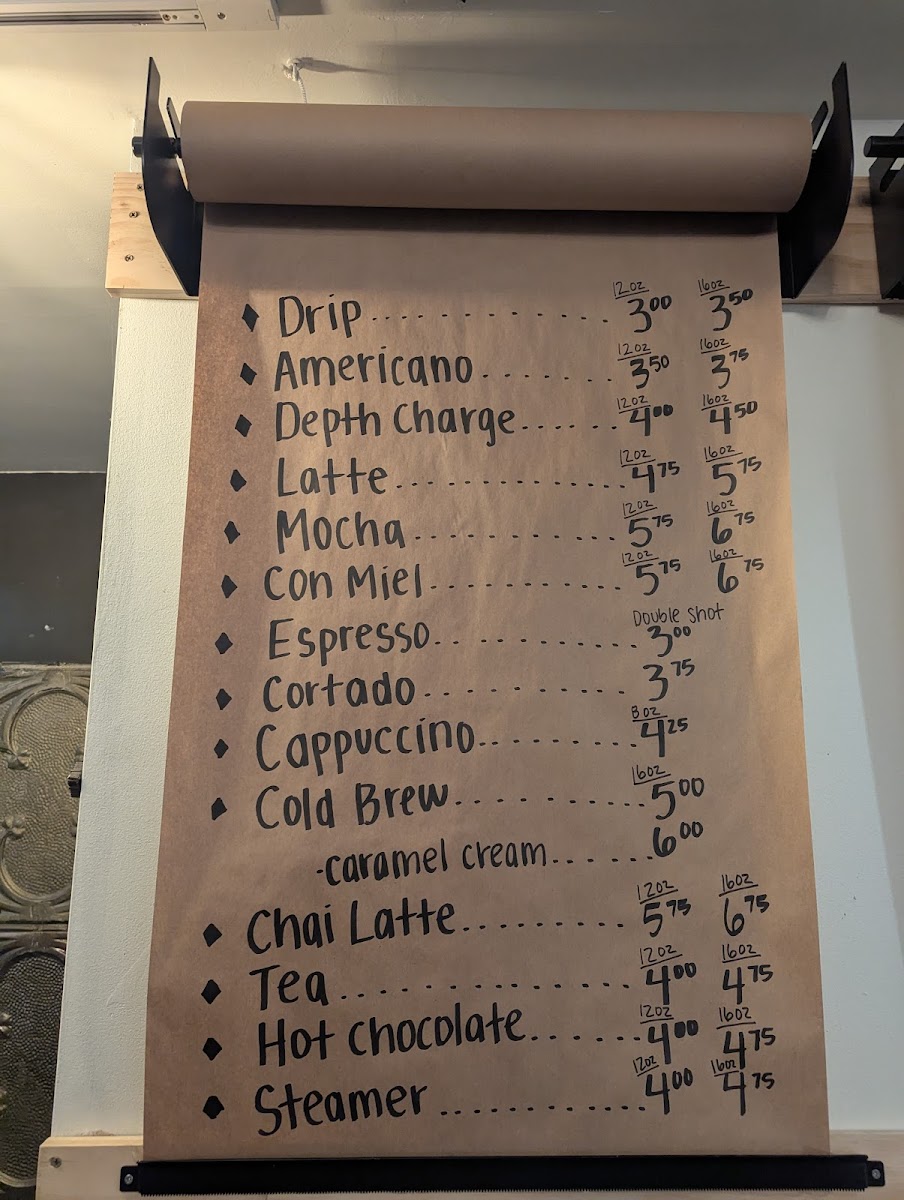 12oz 16oz
Drip 3.00 3.50
12oz 16oz
Americano 3.50 3.75
12oz 16oz
Depth Charge 4.00 4.50
12oz 16oz
Latte 4.75 5.75
12oz 16oz
Mocha 5.75 6.75
12oz 16oz
Con Miel 5.75 6.75
Double Shot
Espresso 3.00
Cortado 3.75
8oz
Cappuccino 4.25
16oz
Cold Brew 5.00
-caramel cream 6.00
12oz 16oz
Chai Latte 5.75 6.75
12oz 16oz
Tea 4.00 4.75
12oz 16oz
Hot Chocolate 4.00 4.75
12oz 16oz
Steamer 4.00 4.75